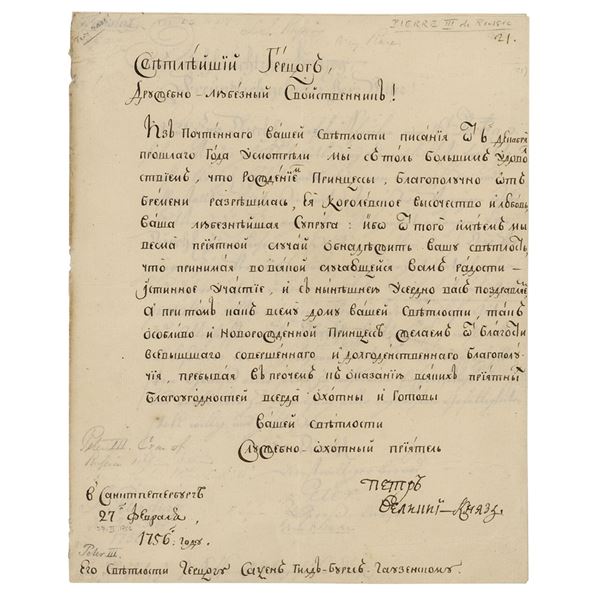 PIERRE III de Russie
21.
Свѣтлѣйшій Герцогъ,
Дружебно-любезный Свойственникъ!
Изъ Почтеннаго вашей Свѣтлости писанія
прошлаго Года усмотрѣли мы съ толь большимъ удово
ствіемъ, что рожденіемъ Принцессы, благополучно отъ
бремени разрѣшилась, Ея Королевское высочество и любовь
ваша любезнѣйшая Супруга: ибо Ѿ того имѣемъ мы
весма пріятной случай обнадежить вашу свѣтлость
что принимая во всякой случающейся вамъ радости –
истинное участіе, и съ нынѣшнею усердно васъ поздравляе
А при томъ какъ всему дому вашей Свѣтлости, такъ
особливо и Новорожденной Принцесѣ желаемъ Ѿ благости
всевышшаго совершеннаго и долгоденственнаго благополу-
чія, пребывая въ протчемъ къ оказанію всякихъ пріятныхъ
Благоугодностей всегда охотны и Готовы
Вашей свѣтлости
Служебно-охотный пріятель
Петръ
Великій-Князь
в Санктпетербургѣ
27 Февраля
1756 году.
Peter III.
Его Свѣтлости Герцогу Саксенъ Гилдъ-Бургъ-Гаузенскому.